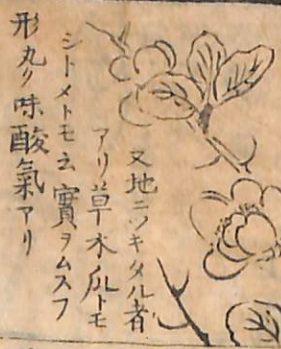 又地ニツキタル者
アリ草木瓜トモ
シトメトモ云實ヲムスフ
形丸ク味酸氣アリ